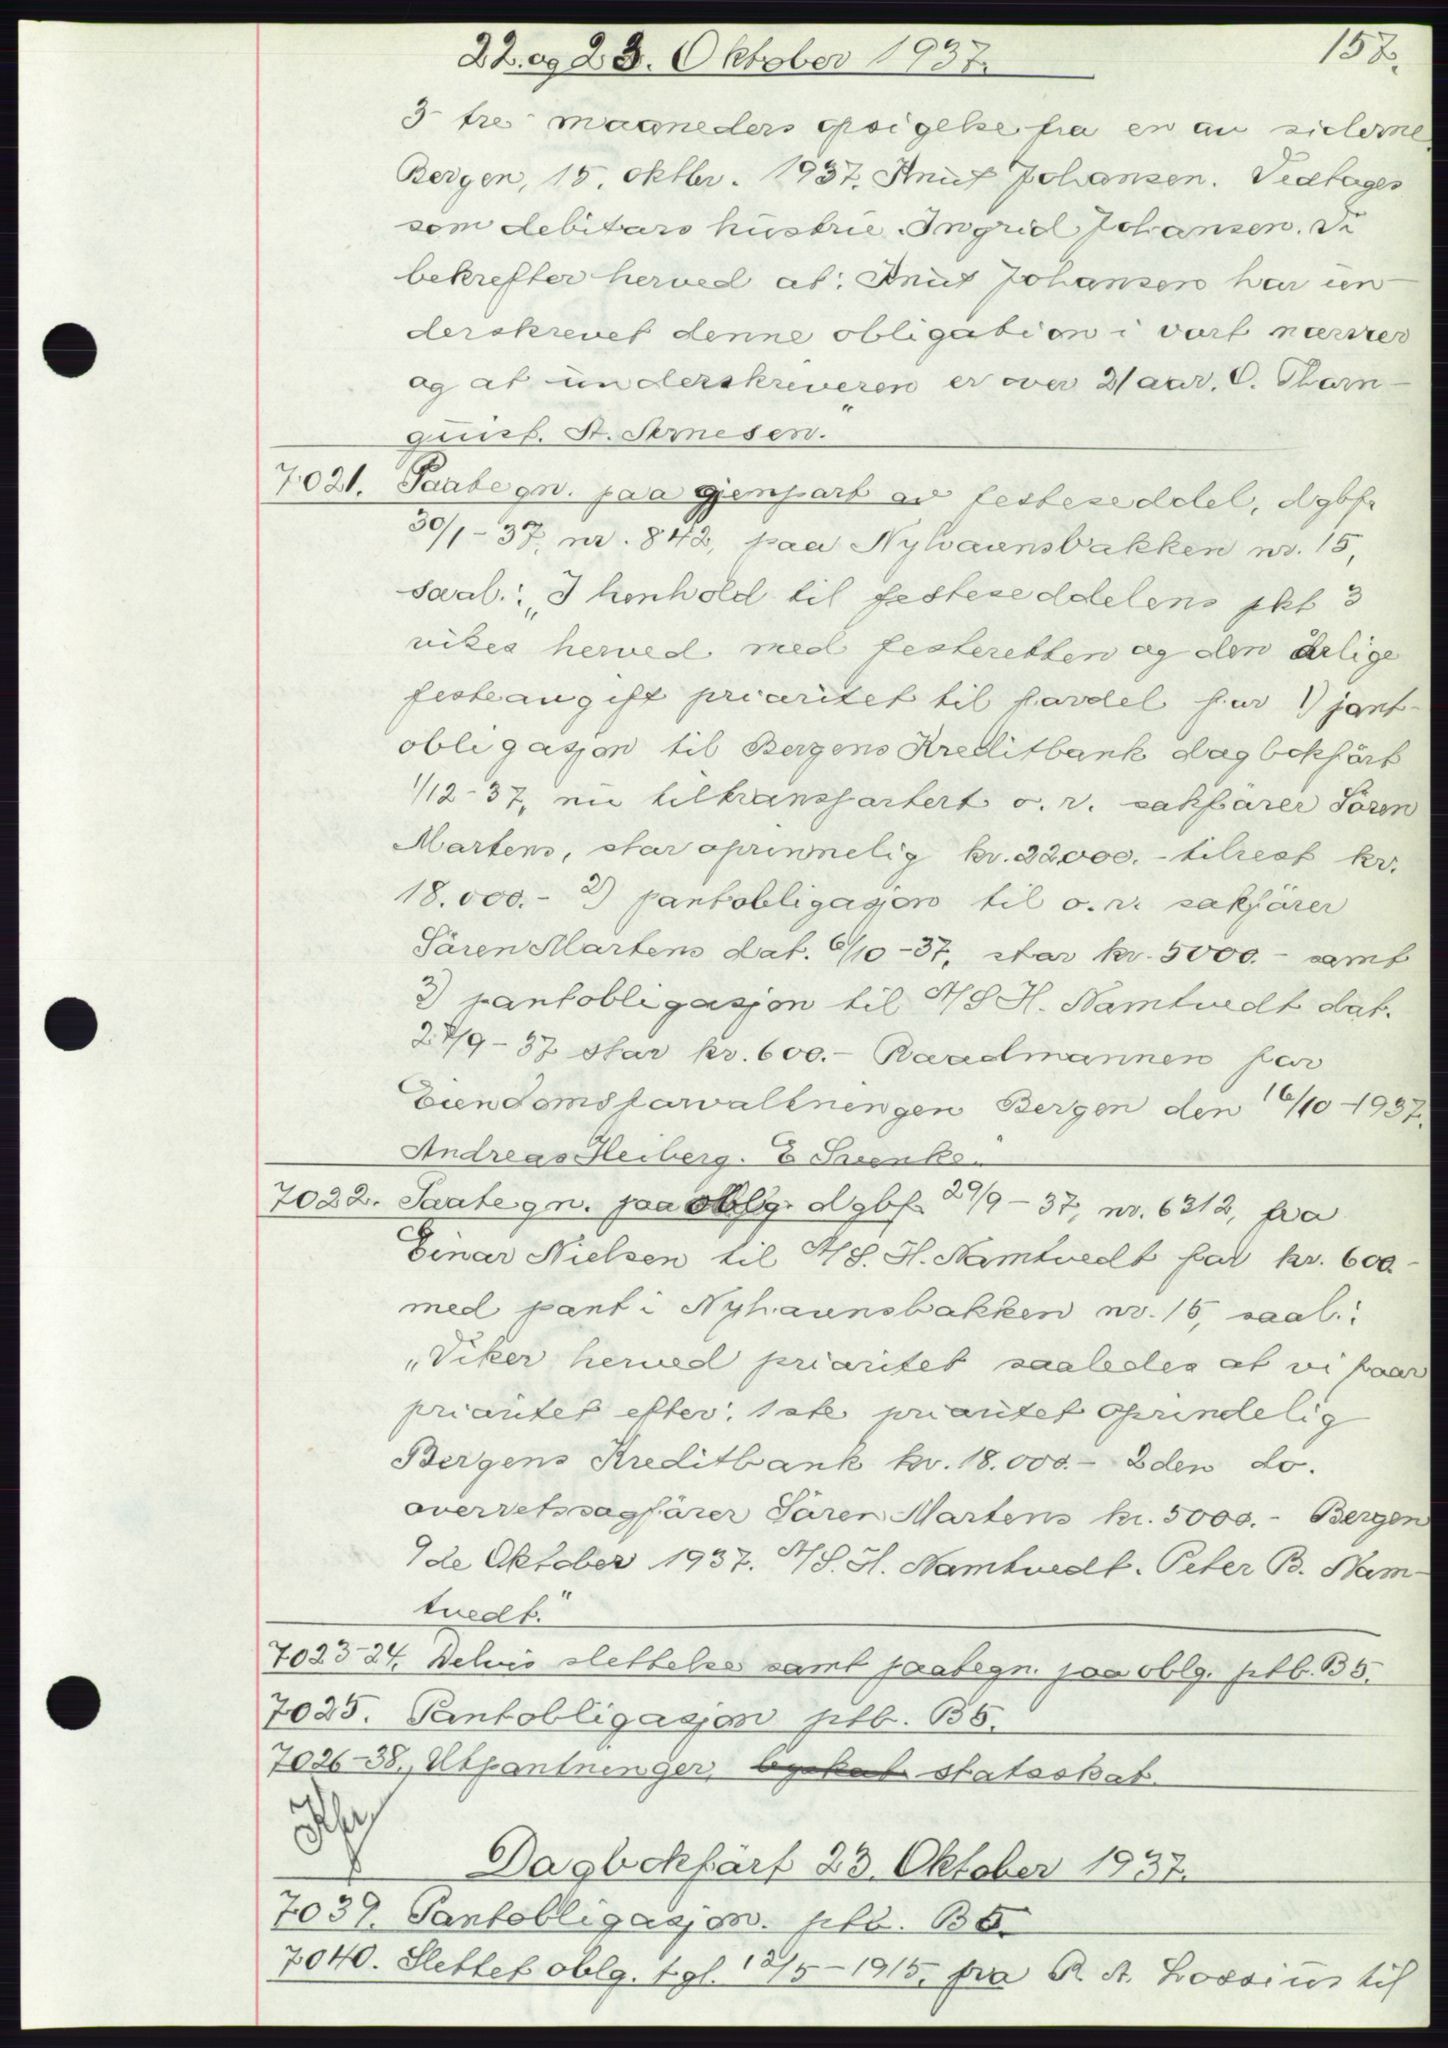 22. og 23. Oktober 1937.
157.
3 - tre - maaneders opsigelse fra en av siderne.
Bergen, 15. oktbr. 1937. Knut Johansen. Vedtages
som debitors hustru. Ingrid Johansen. Vi
bekrefter herved at: Knut Johansen har un-
derskrevet denne obligation i vort nærvær
og at underskriveren er over 21 aar. O. Thorn-
quist. St. Arnesen."
7021. Paategn. paa gjenpart av festeseddel, dgbf.
30/1-37, nr. 842, paa Nyhavnsbakken nr. 15,
saal.: „I henhold til festeseddelens pkt 3
vikes herved med festeretten og den årlige
festeavgift prioritet til fordel for 1) pant-
obligasjon til Bergens Kreditbank dagbokført
1/12-37, nu tiltransportert o. r. sakfører Sören
Martens, stor oprinnelig kr. 22000.- tilrest kr.
18.000.- 2) pantobligasjon til o. r. sakförer
Sören Martens dat. 6/10-37, stor kr. 5000.- samt
3) pantobligasjon til A/S H. Namtvedt dat.
27/9-37 stor kr. 600.- Raadmannen for
Eiendomsforvaltningen Bergen den 16/10-1937.
Andreas Heiberg. E Svenke."
7022. Paategn. paa oblg. dgbf. 29/9-37, nr. 6312, fra
Einar Nielsen til A/S. H. Namtvedt for kr. 600.-
med pant i Nyhavnsbakken nr. 15, saal.:
„Viker herved prioritet saaledes at vi faar
prioritet efter: 1ste prioritet oprindelig
Bergens Kreditbank kr. 18.000.- 2den do.
overretssagförer Sören Martens kr. 5000.- Bergen
9de Oktober 1937. A/S. H. Namtvedt. Peter B. Nam-
tvedt."
7023-24. Delvis slettelse samt paategn. paa oblg. ptb. B5.
7025. Pantobligasjon ptb. B5.
7026-38. Utpantninger, byskat statsskat.
Dagbokfört 23. Oktober 1937.
7039. Pantobligasjon. ptb. B5.
7040. Slettet oblg. tgl. 12/5-1915, fra R. A. Lossius til